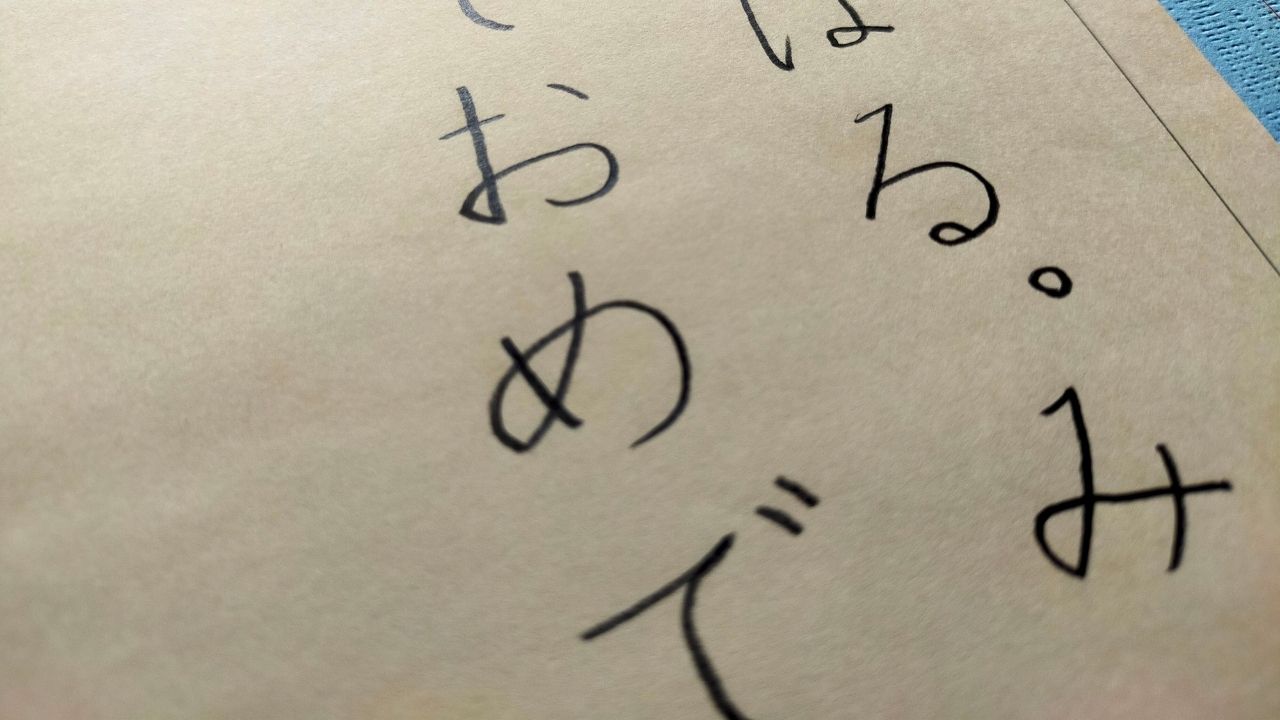 はる。み
おめで